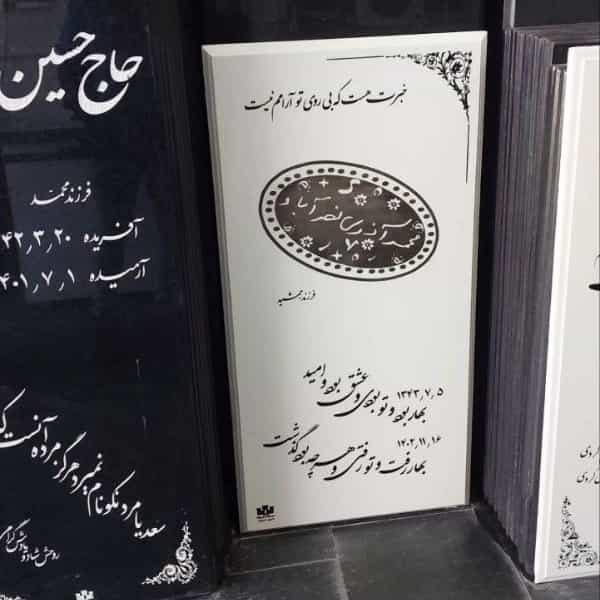 حاج حسین
فرزند محمد
آفریده ۴۲٫۳٫۲۰
آرمیده ۴۰۱٫۷٫۱
سعدیا مرد نکونام نمیرد هرگز
مرده آنست که
روحش شاد و یادش گرامی
خبرت هست که بی روی تو آرامم نیست
محمد
فرزند جمشید
۱۳۷۳٫۷٫۵
بهار بود و تو بودی و عشق بود و امید
۱۴۰۲٫۱۱٫۱۶
بهار رفت و تو رفتی و هر چه بود گذشت